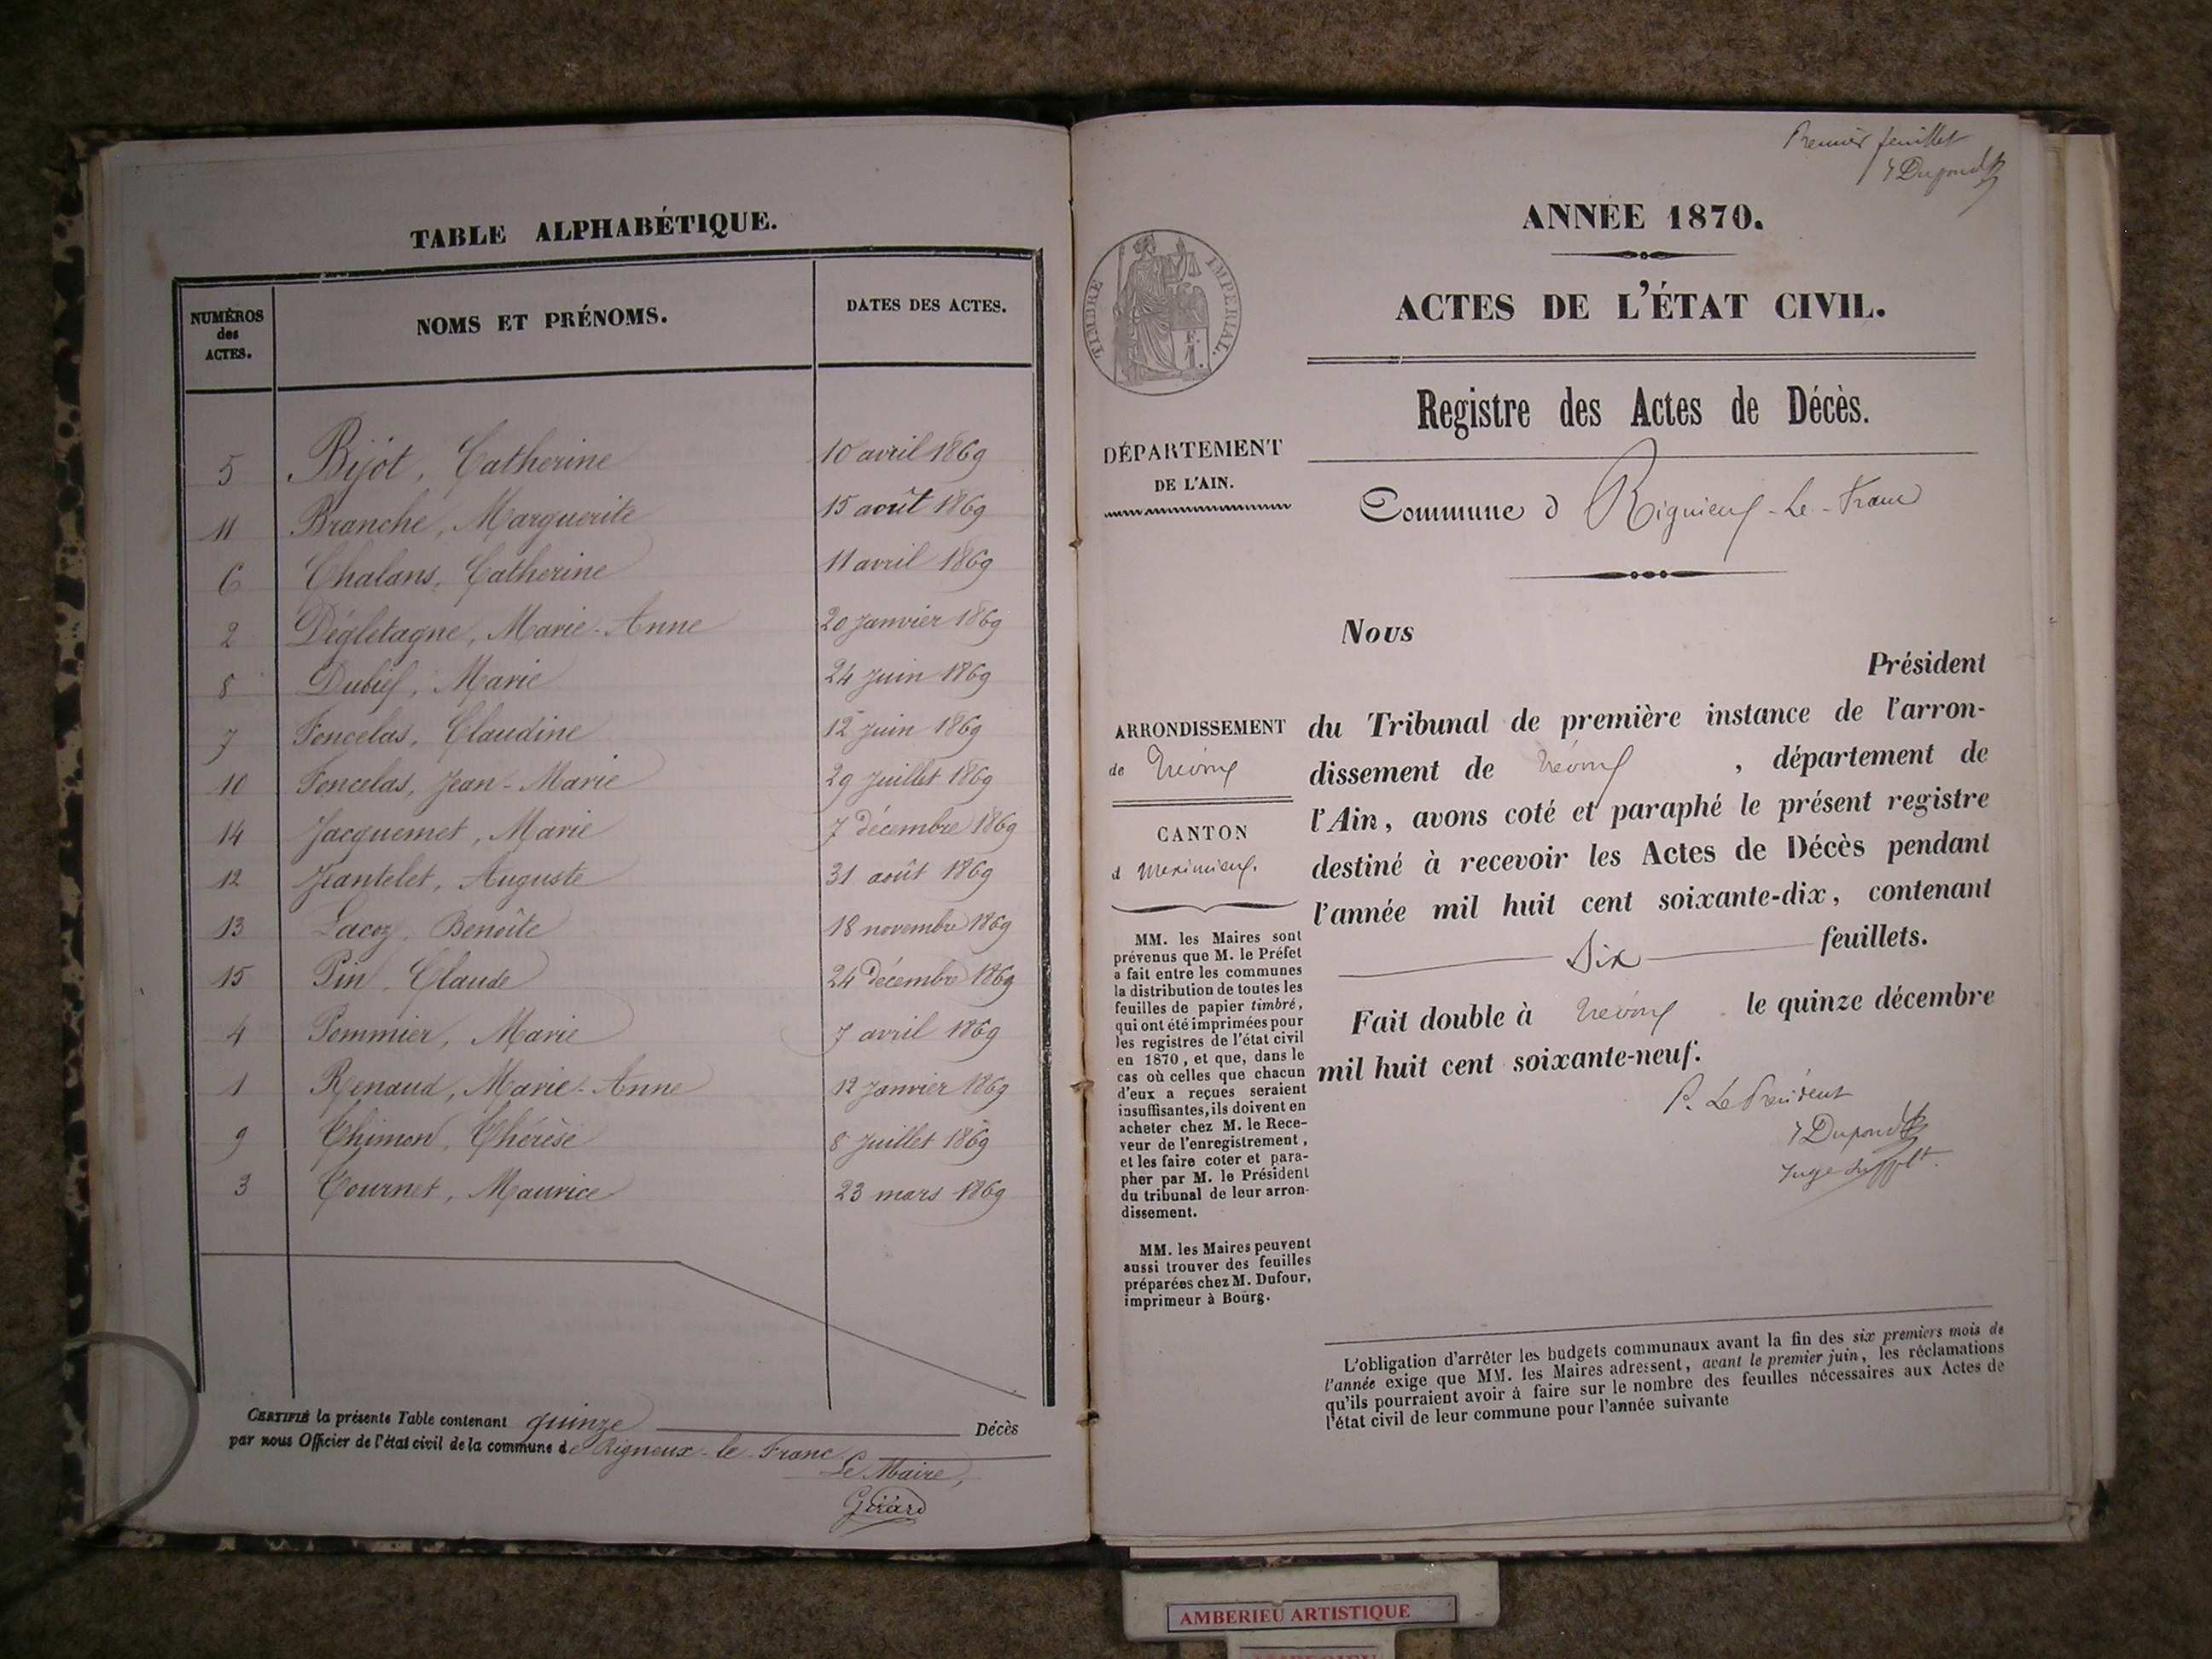 TABLE ALPHABÉTIQUE.
NUMÉROS des ACTES. NOMS ET PRÉNOMS. DATES DES ACTES.
5 Bijot, Catherine 10 avril 1869
11 Branche, Marguerite 15 août 1869
6 Chalans, Catherine 11 avril 1869
2 Dégletagne, Marie-Anne 20 Janvier 1869
8 Dubief, Marie 24 Juin 1869
7 Foncelas, Claudine 12 Juin 1869
10 Foncelas, Jean-Marie 29 Juillet 1869
14 Jacquemet, Marie 7 décembre 1869
12 Jeantelet, Auguste 31 août 1869
13 Lacoz, Benoîte 18 novembre 1869
15 Pin, Claude 24 décembre 1869
4 Pommier, Marie 7 avril 1869
1 Renaud, Marie-Anne 12 Janvier 1869
9 Thimon, Thérèse 8 Juillet 1869
3 Tournet, Maurice 23 mars 1869
CERTIFIÉ la présente Table contenant quinze Décès
par nous Officier de l'état civil de la commune de Rigneux-le-Franc
Le Maire,
Girard
Premier feuillet
Dupond
ANNÉE 1870.
ACTES DE L'ÉTAT CIVIL.
TIMBRE IMPERIAL.
Registre des Actes de Décès.
DÉPARTEMENT
DE L'AIN.
Commune d Rignieux-Le-Franc
ARRONDISSEMENT
de Trévoux
CANTON
d Meximieux.
MM. les Maires sont
prévenus que M. le Préfet
a fait entre les communes
la distribution de toutes les
feuilles de papier timbré,
qui ont été imprimées pour
les registres de l'état civil
en 1870, et que, dans le
cas où celles que chacun
d'eux a reçues seraient
insuffisantes, ils doivent en
acheter chez M. le Rece-
veur de l'enregistrement,
et les faire coter et para-
pher par M. le Président
du tribunal de leur arron-
dissement.
MM. les Maires peuvent
aussi trouver des feuilles
préparées chez M. Dufour,
imprimeur à Bourg.
Nous
Président
du Tribunal de première instance de l'arron-
dissement de Trévoux, département de
l'Ain, avons coté et paraphé le présent registre
destiné à recevoir les Actes de Décès pendant
l'année mil huit cent soixante-dix, contenant
Six feuillets.
Fait double à Trévoux le quinze décembre
mil huit cent soixante-neuf.
P. Le Président
Dupond
Juge suppt.
L'obligation d'arrêter les budgets communaux avant la fin des six premiers mois de
l'année exige que MM. les Maires adressent, avant le premier juin, les réclamations
qu'ils pourraient avoir à faire sur le nombre des feuilles nécessaires aux Actes de
l'état civil de leur commune pour l'année suivante
AMBERIEU ARTISTIQUE